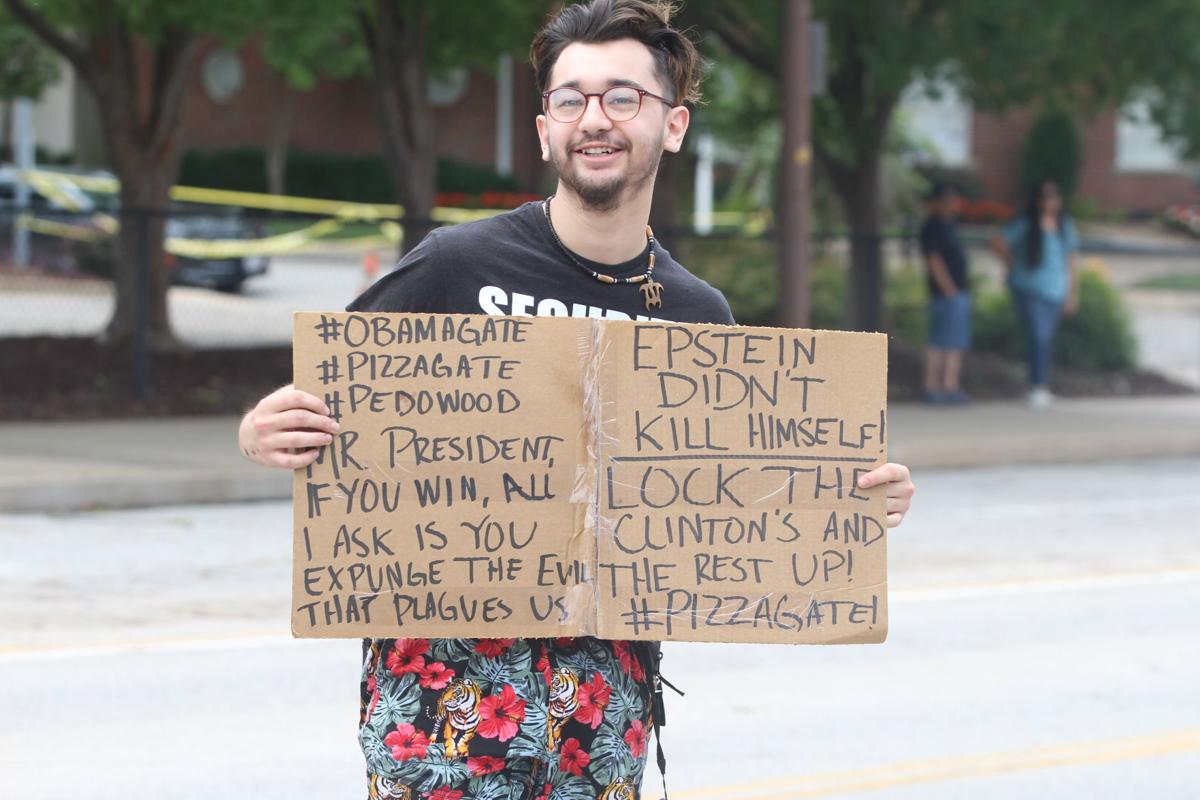 #OBAMAGATE
#PIZZAGATE
#PEDOWOOD
MR. PRESIDENT,
IF YOU WIN, ALL
I ASK IS YOU
EXPUNGE THE EVIL
THAT PLAGUES US
EPSTEIN
DIDN'T
KILL HIMSELF!
LOCK THE
CLINTON'S AND
THE REST UP!
#PIZZAGATE!